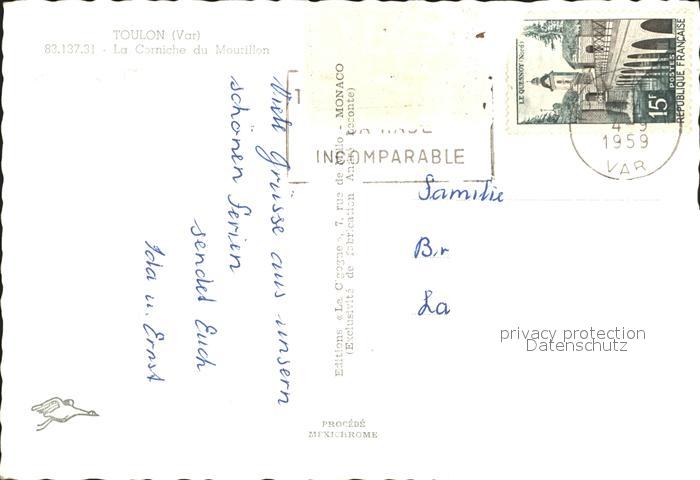 TOULON (Var)
83.137.31 - La Corniche du Mourillon
Viele Grüsse aus unsern
schönen Ferien
sendet Euch
Ida u. Ernst
Editions «La Cigogne», 7, rue de Millo MONACO
(Exclusivité de fabrication André Leconte)
PROCÉDÉ
MEXICHROME
INCOMPARABLE
LE QUESNOY (Nord)
15F
POSTES
RÉPUBLIQUE FRANÇAISE
1959
VAR
Familie
Br
La
privacy protection
Datenschutz